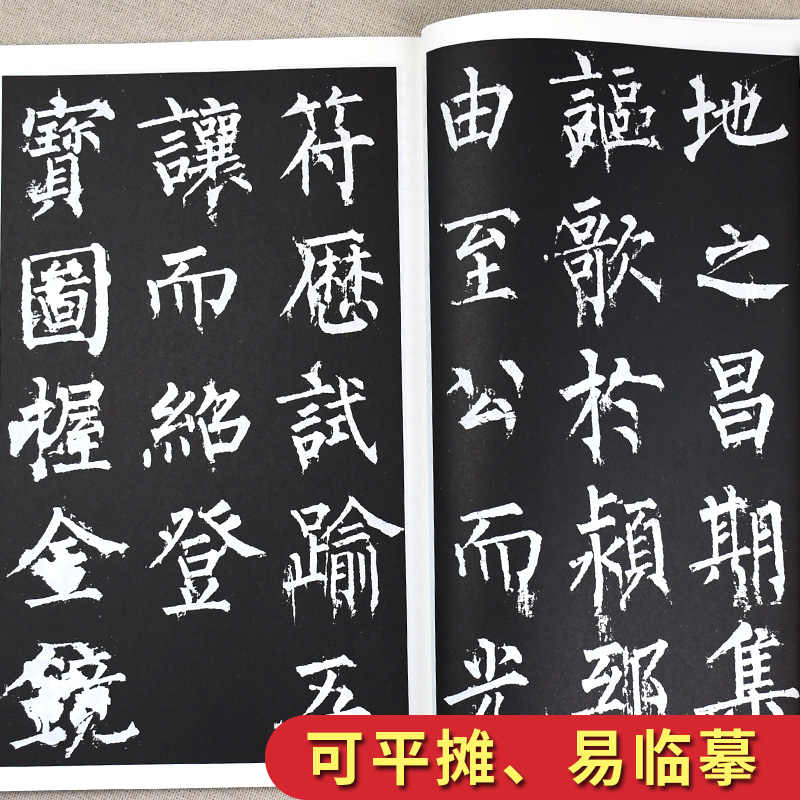 地之昌期集
謳歌於潁邸
由至公而光
符歴試踰五
讓而紹登
寶圖握金鏡
可平摊、易临摹